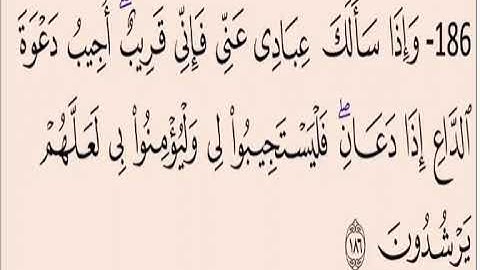 186- وَإِذَا سَأَلَكَ عِبَادِى عَنِّى فَإِنِّى قَرِيبٌ ۖ أُجِيبُ دَعْوَةَ
ٱلدَّاعِ إِذَا دَعَانِ ۖ فَلْيَسْتَجِيبُوا۟ لِى وَلْيُؤْمِنُوا۟ بِى لَعَلَّهُمْ
يَرْشُدُونَ ١٨٦